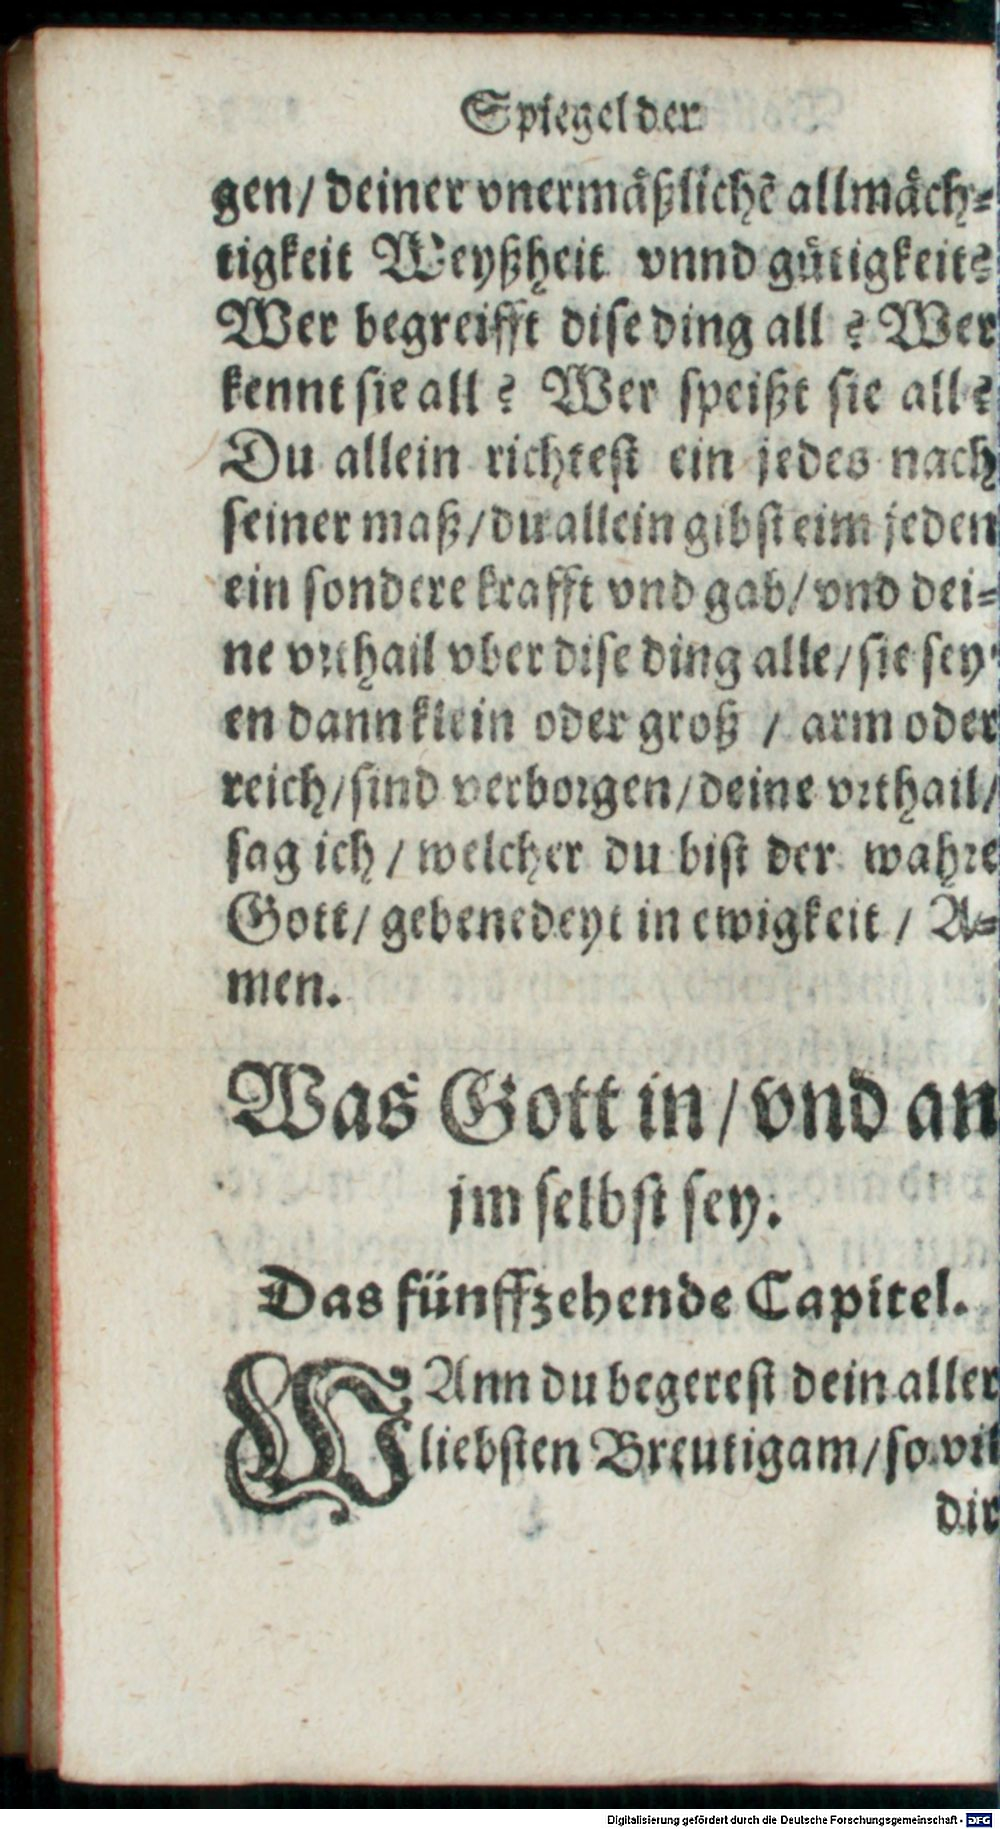 Spiegel der
gen/ deiner vnermäßlichē allmäch-
tigkeit Weyßheit vnnd gütigkeit?
Wer begreifft dise ding all ? Wer
kennt sie all ? Wer speißt sie all ?
Du allein richtest ein jedes nach
seiner maß/ du allein gibst eim jeden
ein sondere krafft vnd gab/ vnd dei-
ne vrthail vber dise ding alle/ sie sey-
en dann klein oder groß / arm oder
reich/ sind verborgen/ deine vrthail/
sag ich / welcher du bist der wahre
Gott/ gebenedeyt in ewigkeit / A-
men.
Was Gott in/ vnd an
jm selbst sey.
Das fünffzehende Capitel.
WAnn du begerest dein aller
liebsten Breutigam/ so vil
dir
Digitalisierung gefördert durch die Deutsche Forschungsgemeinschaft - DFG